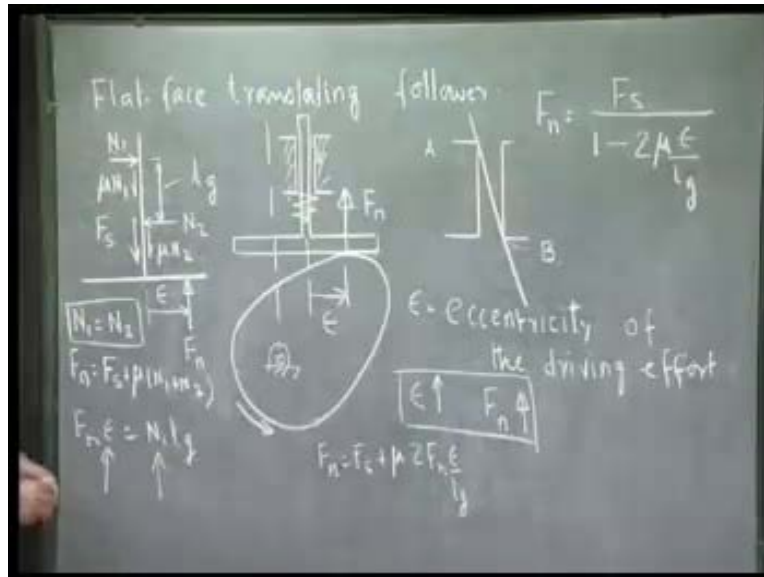 Flat-face translating follower
Fn = Fs / (1 - 2μ ε/lg)
N1
μN1
lg
Fs
N2
μN2
ε
Fn
N1 = N2
Fn = Fs + μ(N1+N2)
Fn ε = N1 lg
Fn
ε
A
B
ε - eccentricity of
the driving effort
ε↑ Fn↑
Fn = Fs + μ 2Fn ε/lg